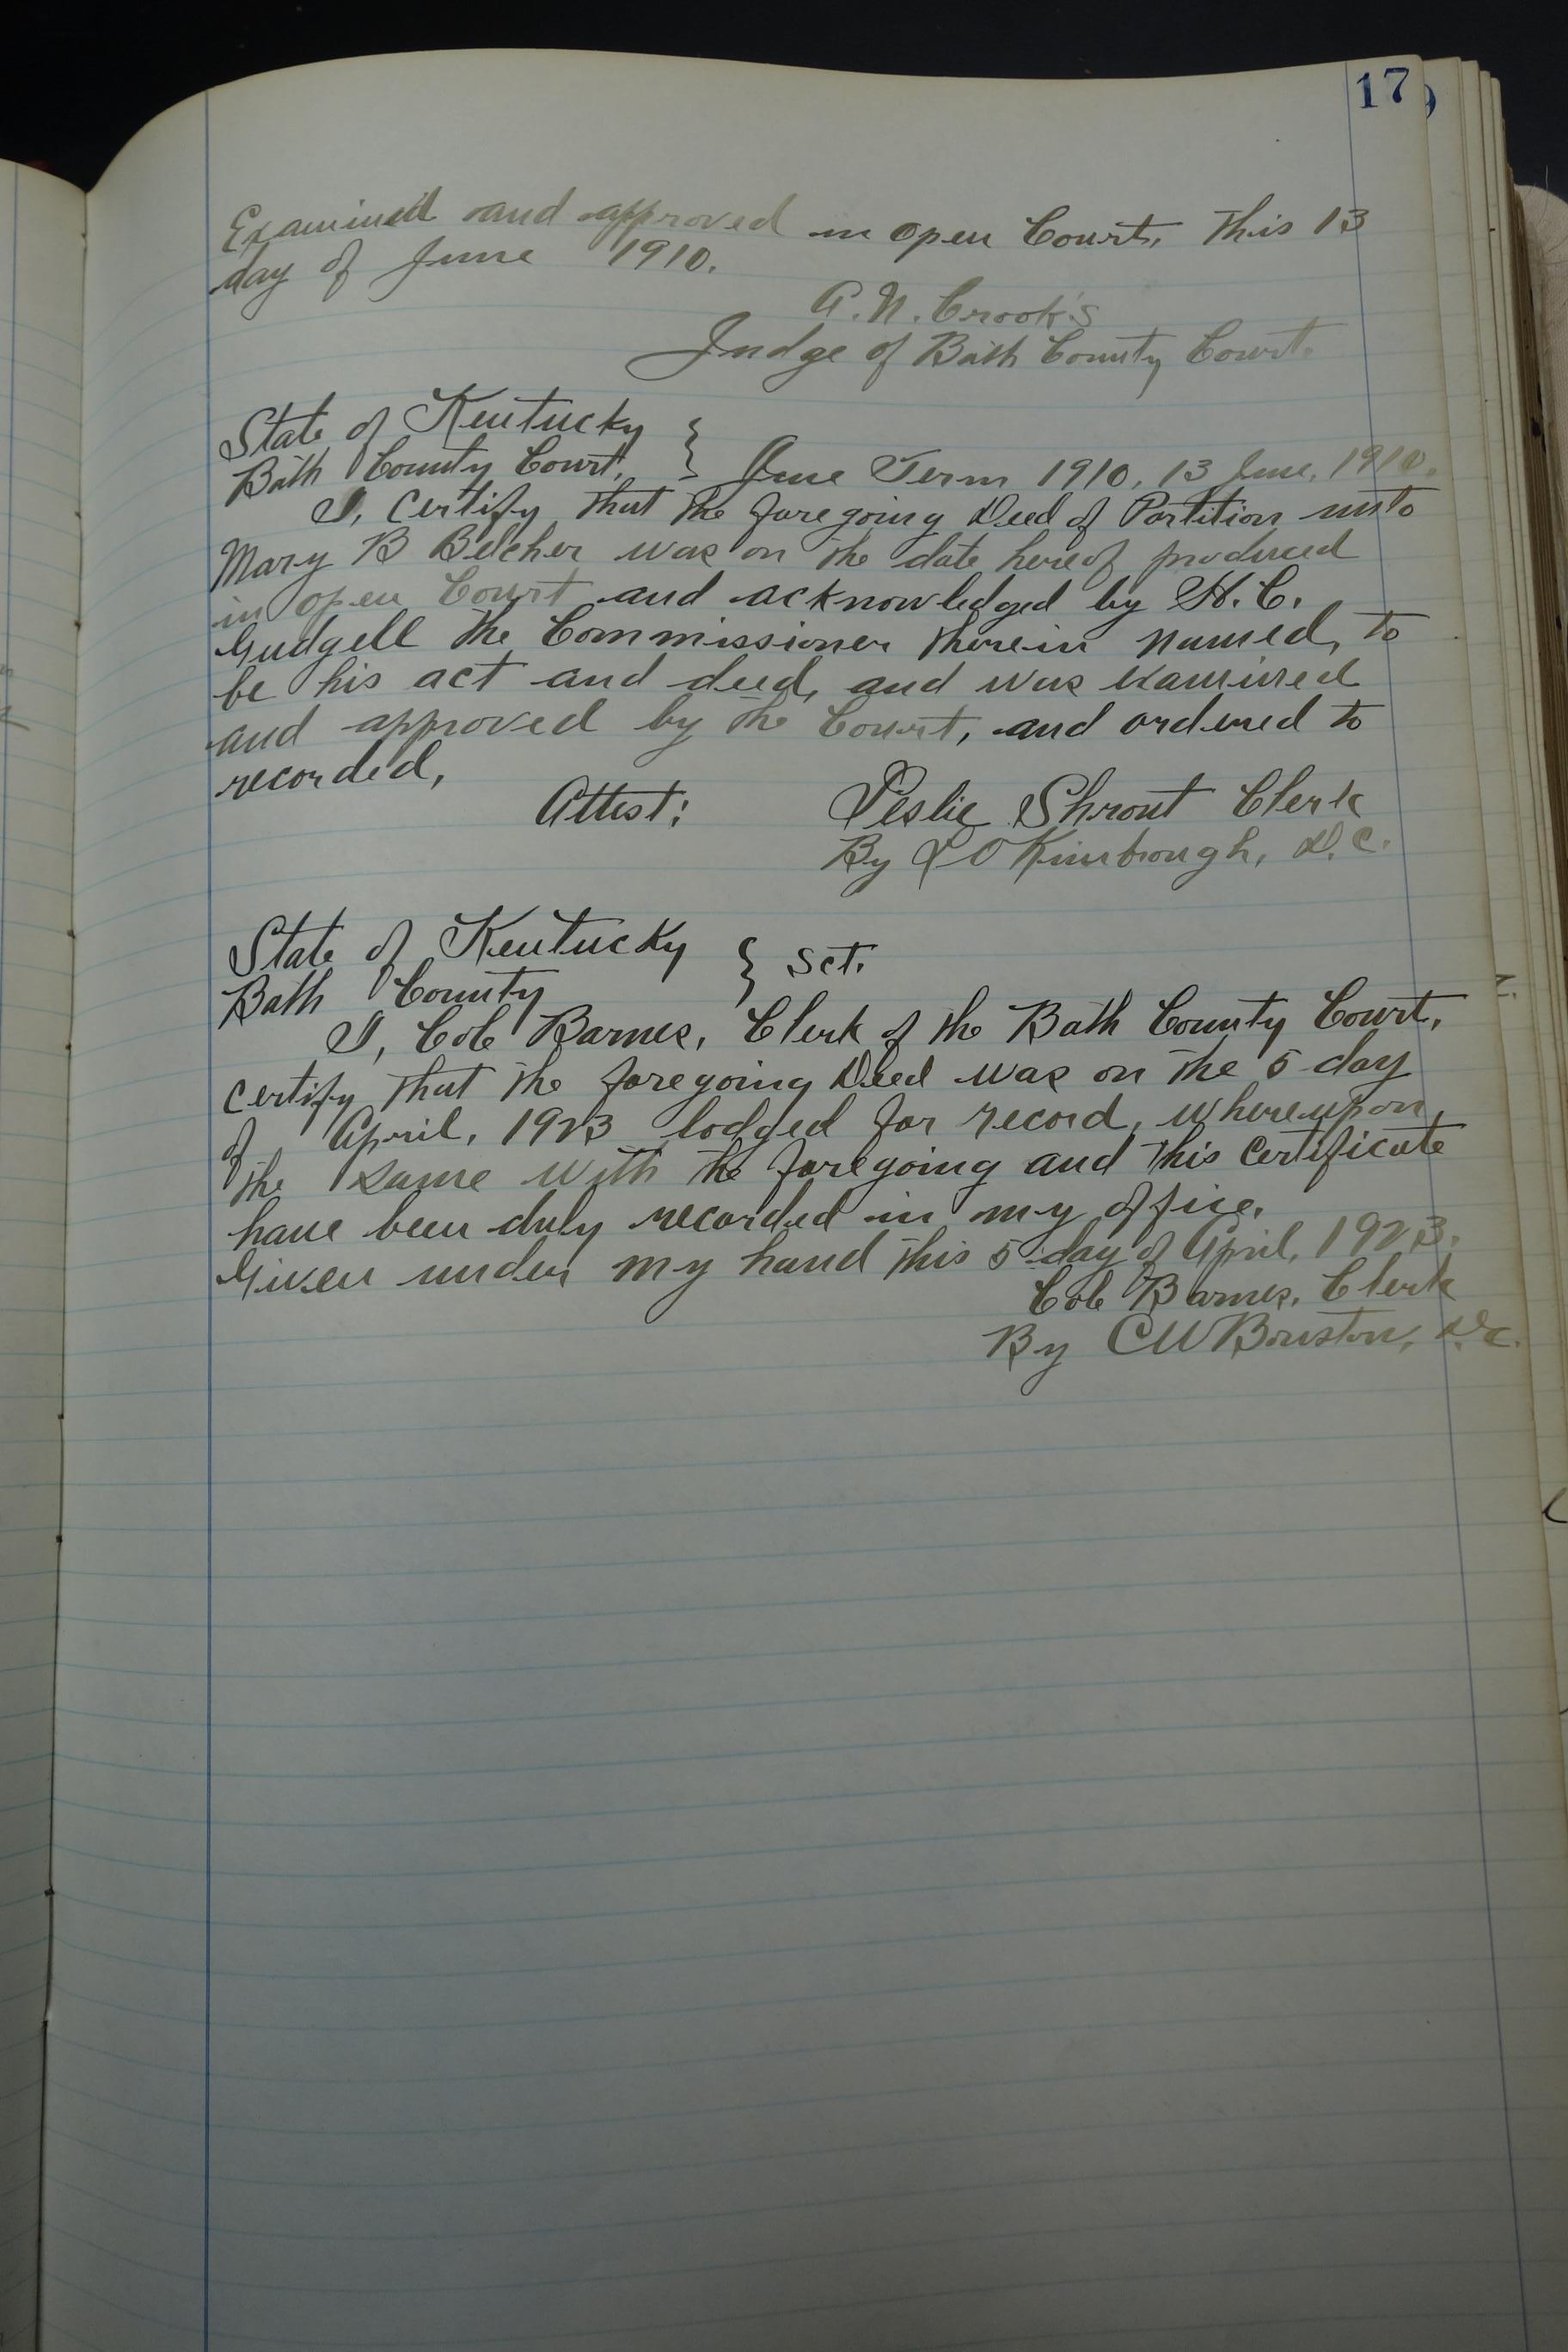 17
Examined and approved in open Court, this 13
day of June 1910.
A. N. Crook's
Judge of Bath County Court.
State of Kentucky }
Bath County Court, } June Term 1910, 13 June, 1910.
I, certify that the foregoing Deed of Partition unto
Mary B Belcher was on the date hereof produced
in open Court and acknowledged by H. C.
Gudgell the Commissioner therein named, to
be his act and deed, and was examined
and approved by the Court, and ordered to
recorded,
Attest: Leslie Shrout Clerk
By L O Kimbrough, D.C.
State of Kentucky } Sct.
Bath County
I, Cob Barnes, Clerk of the Bath County Court,
certify that the foregoing Deed was on the 5 day
of April, 1923 lodged for record, whereupon,
the same with the foregoing and this certificate
have been duly recorded in my office.
Given under my hand this 5 day of April, 1923.
Cob Barnes, Clerk
By C W D.C.